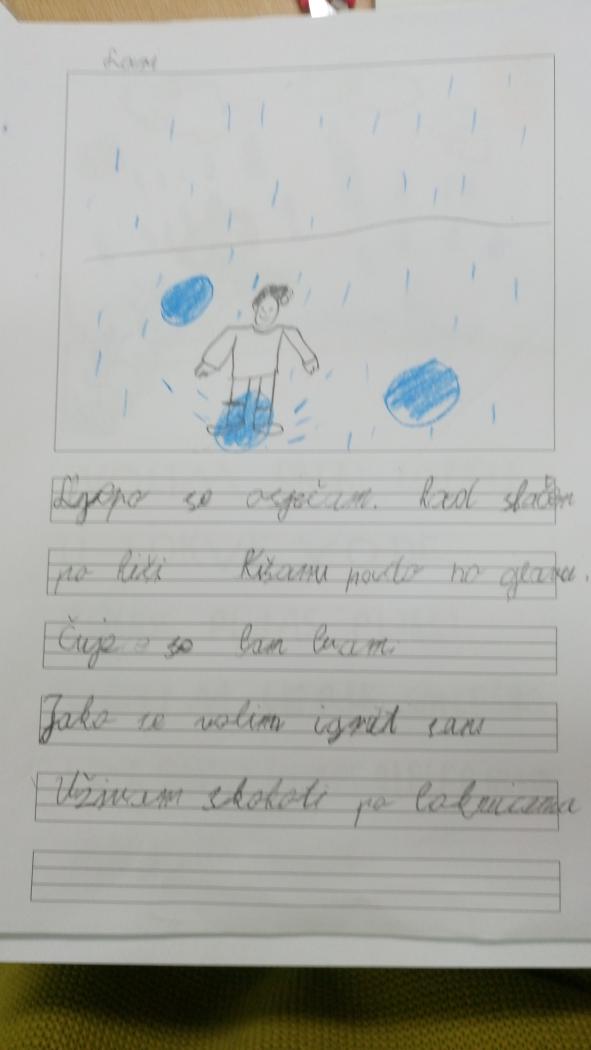 Ljepo se osječam. kad skačem
po kiši Kiša mi pada na glavu.
Čuje se bam bam.
Jako se volim igrat sam
Uživam skakati po lokvicama